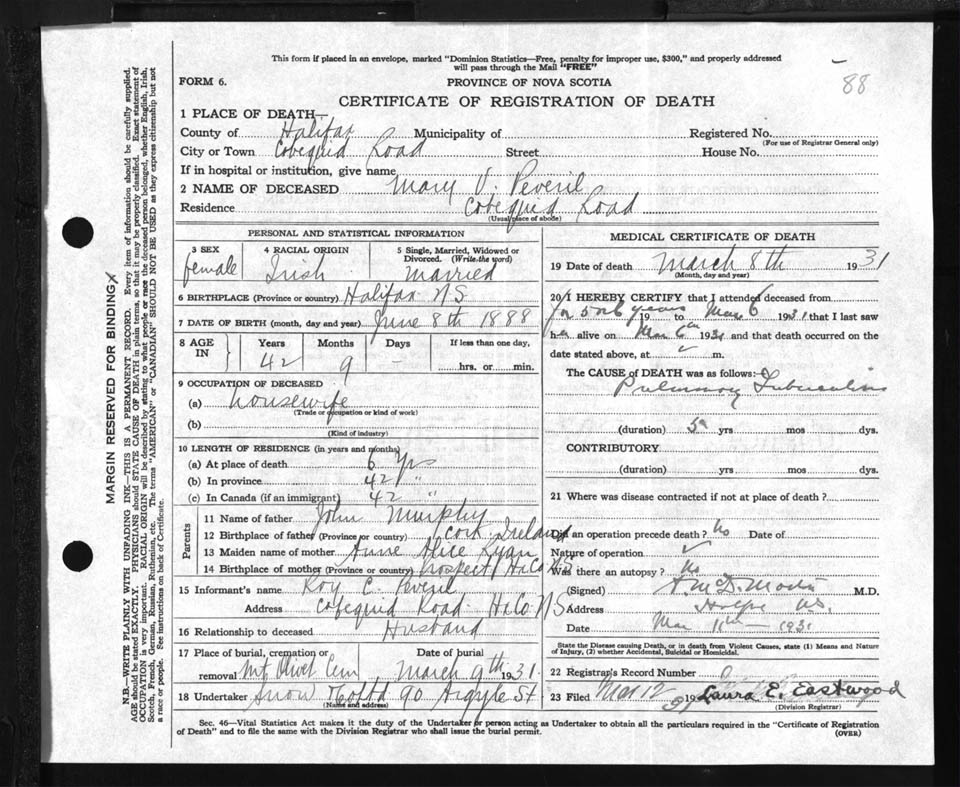 This form if placed in an envelope, marked "Dominion Statistics—Free, penalty for improper use, $300," and properly addressed
will pass through the Mail "FREE"
88
FORM 6.
PROVINCE OF NOVA SCOTIA
CERTIFICATE OF REGISTRATION OF DEATH
1 PLACE OF DEATH—
County of Halifax Municipality of Registered No.
(For use of Registrar General only)
City or Town Cobequid Road Street House No.
If in hospital or institution, give name
2 NAME OF DECEASED Mary V. Peveril
Residence Cobequid Road
(Usual place of abode)
PERSONAL AND STATISTICAL INFORMATION
3 SEX 4 RACIAL ORIGIN 5 Single, Married, Widowed or
Divorced. (Write the word)
female Irish Married
6 BIRTHPLACE (Province or country) Halifax N S
7 DATE OF BIRTH (month, day and year) June 8th 1888
8 AGE IN Years Months Days If less than one day,
42 9 - hrs. or min.
9 OCCUPATION OF DECEASED
(a) housewife
(Trade or occupation or kind of work)
(b)
(Kind of industry)
10 LENGTH OF RESIDENCE (in years and months)
(a) At place of death 6 yrs
(b) In province 42 "
(c) In Canada (if an immigrant) 42 "
Parents
11 Name of father John Murphy
12 Birthplace of father (Province or country) Cork Ireland
13 Maiden name of mother Anne Alice Ryan
14 Birthplace of mother (Province or country) Prospect Hx Co N S
15 Informant's name Roy C. Peveril
Address Cobequid Road Hx Co N S
16 Relationship to deceased Husband
17 Place of burial, cremation or Date of burial
removal Mt Olivet Cem March 9th 1931
18 Undertaker Snow & Co Ltd 90 Argyle St
(Name and address)
MEDICAL CERTIFICATE OF DEATH
19 Date of death March 8th 1931
(Month, day and year)
20 I HEREBY CERTIFY that I attended deceased from
for 5 or 6 years 19 to Mar 6 1931 that I last saw
her alive on Mar 6th 1931 and that death occurred on the
date stated above, at m.
The CAUSE OF DEATH was as follows:
Pulmonary Tuberculosis
(duration) 5 yrs mos dys.
CONTRIBUTORY
(duration) yrs mos dys.
21 Where was disease contracted if not at place of death?
Did an operation precede death? No Date of
Nature of operation
Was there an autopsy? No
(Signed) M.D.
Address N.S.
Date Mar 11th — 1931
State the Disease causing Death, or in death from Violent Causes, state (1) Means and Nature
of Injury, (2) whether Accidental, Suicidal or Homicidal.
22 Registrar's Record Number
23 Filed Mar 12 1931 Laura E. Eastwood
(Division Registrar)
Sec. 46—Vital Statistics Act makes it the duty of the Undertaker or person acting as Undertaker to obtain all the particulars required in the "Certificate of Registration
of Death" and to file the same with the Division Registrar who shall issue the burial permit.
(OVER)
MARGIN RESERVED FOR BINDING
N.B.—WRITE PLAINLY WITH UNFADING INK—THIS IS A PERMANENT RECORD. Every item of information should be carefully supplied.
AGE should be stated EXACTLY. PHYSICIANS should STATE CAUSE OF DEATH in plain terms, so that it may be properly classified. Exact statement of
OCCUPATION is very important. RACIAL ORIGIN will be described by stating to what people or race the deceased person belonged, whether English, Irish,
Scotch, French, German, Russian, Ruthenian, etc. The terms "AMERICAN" or "CANADIAN" SHOULD NOT BE USED as they express citizenship but not
a race or people. See instructions on back of Certificate.